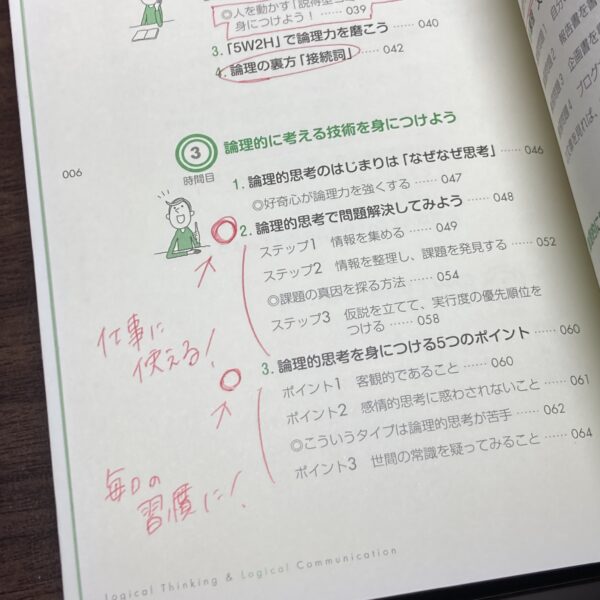 ◎人を動かす「説得
身につけよう！ …… 039
3. 「5W2H」で論理力を磨こう …… 040
4. 論理の裏方「接続詞」 …… 042
006
3
時間目
論理的に考える技術を身につけよう
1. 論理的思考のはじまりは「なぜなぜ思考」 …… 046
◎好奇心が論理力を強くする …… 047
2. 論理的思考で問題解決してみよう …… 048
ステップ1 情報を集める …… 049
ステップ2 情報を整理し、課題を発見する …… 052
◎課題の真因を探る方法 …… 054
ステップ3 仮説を立てて、実行度の優先順位を
つける …… 058
仕事に
使える！
3. 論理的思考を身につける5つのポイント …… 060
ポイント1 客観的であること …… 060
ポイント2 感情的思考に惑わされないこと …… 061
◎こういうタイプは論理的思考が苦手 …… 062
ポイント3 世間の常識を疑ってみること …… 064
毎日の
習慣に！
Logical Thinking & Logical Communication
報告書を
企画書を
プログ